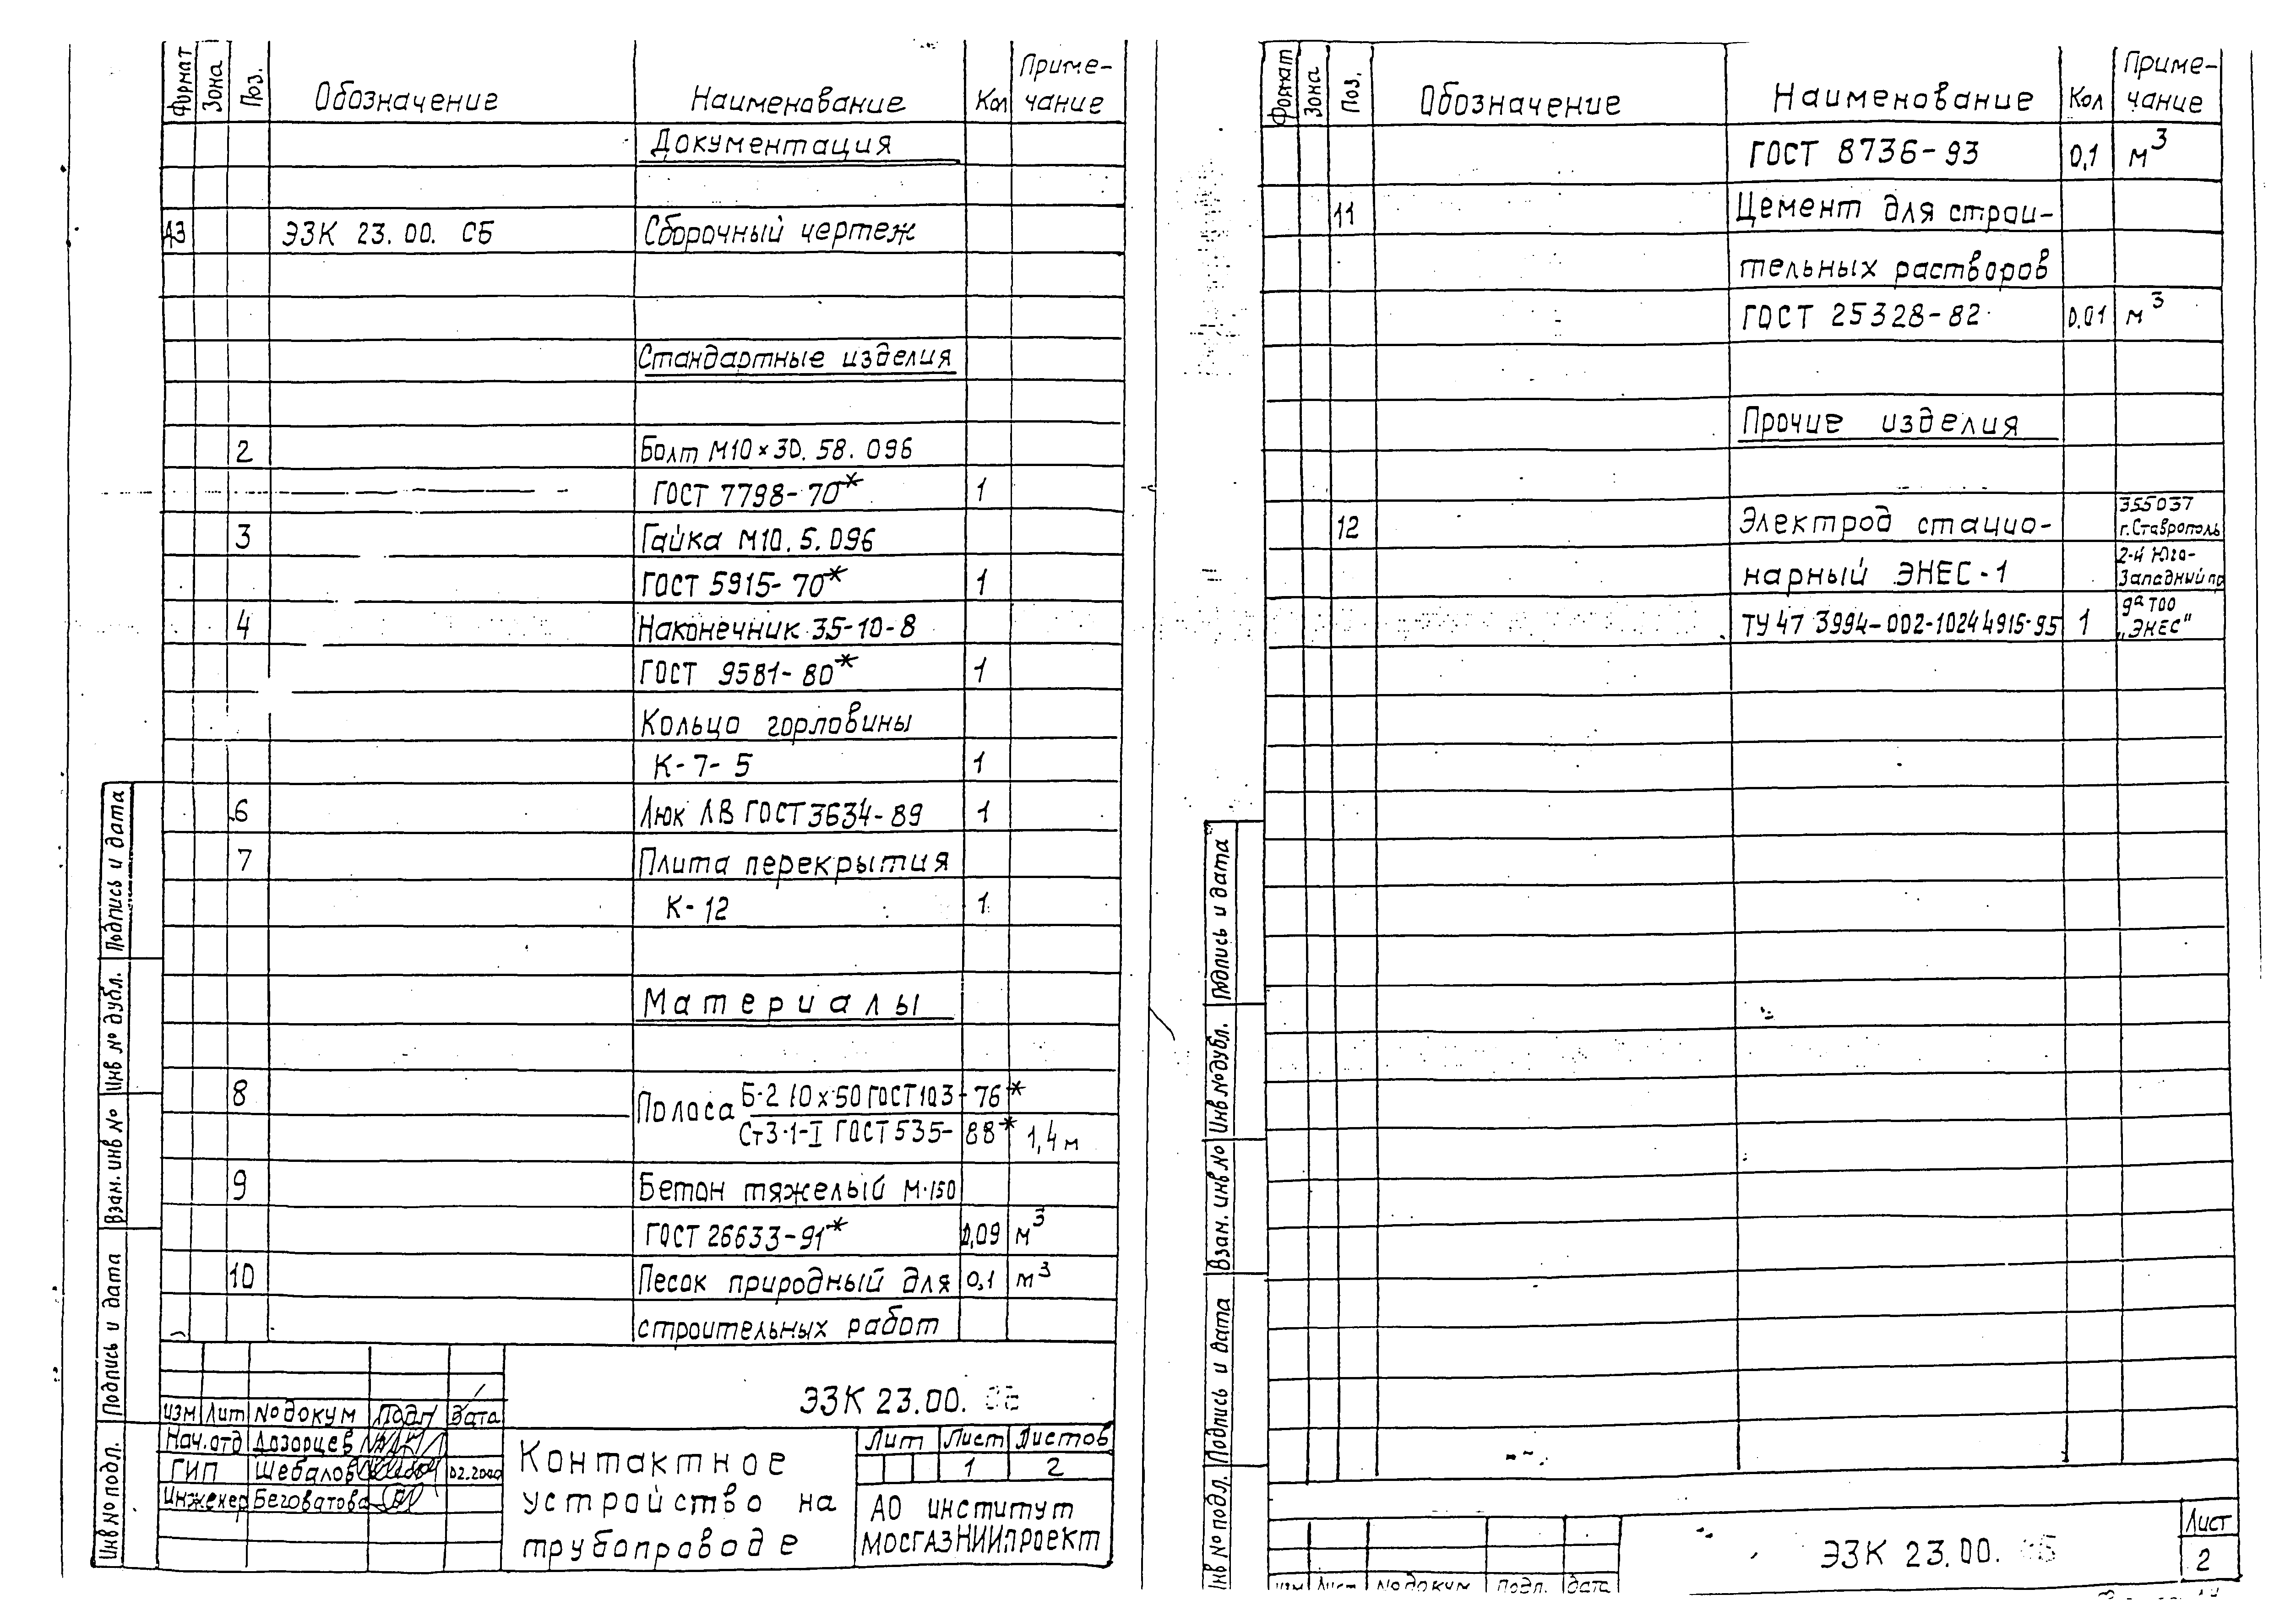 Формат Зона Поз. Обозначение Наименование Кол Приме-
чание
Документация
А3 ЭЗК 23.00. СБ Сборочный чертеж
Стандартные изделия
2 Болт М10×30.58.096
ГОСТ 7798-70* 1
3 Гайка М10.5.096
ГОСТ 5915-70* 1
4 Наконечник 35-10-8
ГОСТ 9581-80* 1
Кольцо горловины
К-7-5 1
6 Люк ЛВ ГОСТ 3634-89 1
7 Плита перекрытия
К-12 1
Материалы
8 Полоса Б-2 10×50 ГОСТ 103-76*
Ст3-1-I ГОСТ 535-88* 1,4 м
9 Бетон тяжелый М-150
ГОСТ 26633-91* 0,09 м³
10 Песок природный для 0,1 м³
строительных работ
ЭЗК 23.00. СБ
Изм Лит № докум Подп Дата
Нач.отд Дозорцев
ГИП Шебалов 02.2000
Инженер Беговатова
Контактное
устройство на
трубопроводе
Лит Лист Листов
1 2
АО институт
МОСГАЗНИИпроект
Подпись и дата
Инв № дубл.
Взам. инв №
Подпись и дата
Инв № подл.
Формат Зона Поз. Обозначение Наименование Кол Приме-
чание
ГОСТ 8736-93 0,1 м³
11 Цемент для строи-
тельных растворов
ГОСТ 25328-82 0.01 м³
Прочие изделия
12 Электрод стацио-
нарный ЭНЕС-1
ТУ 47 3994-002-10244915-95 1
355037
г.Ставрополь
2-й Юго-
Западный пр
9а ТОО
„ЭНЕС"
Подпись и дата
Инв № дубл.
Взам. инв №
Подпись и дата
Инв № подл.
изм Лист № докум подп. дата
ЭЗК 23.00. СБ
Лист
2